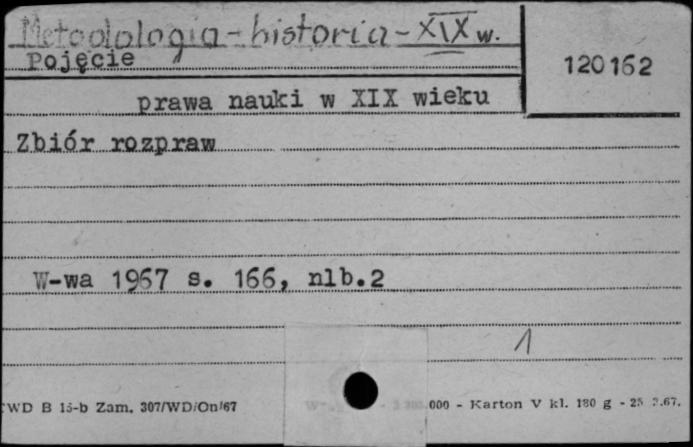 Metodologia - historia - XIX w.
Pojęcie
120162
prawa nauki w XIX wieku
Zbiór rozpraw
W-wa 1967 s. 166, nlb.2
1
WD B 15-b Zam. 307/WD/On/67 000 - Karton V kl. 180 g - 25